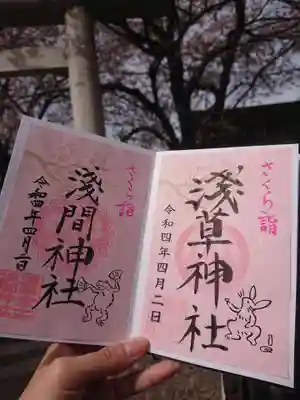 さくら詣
浅草神社
令和四年四月二日
さくら詣
淺間神社
令和四年四月二日